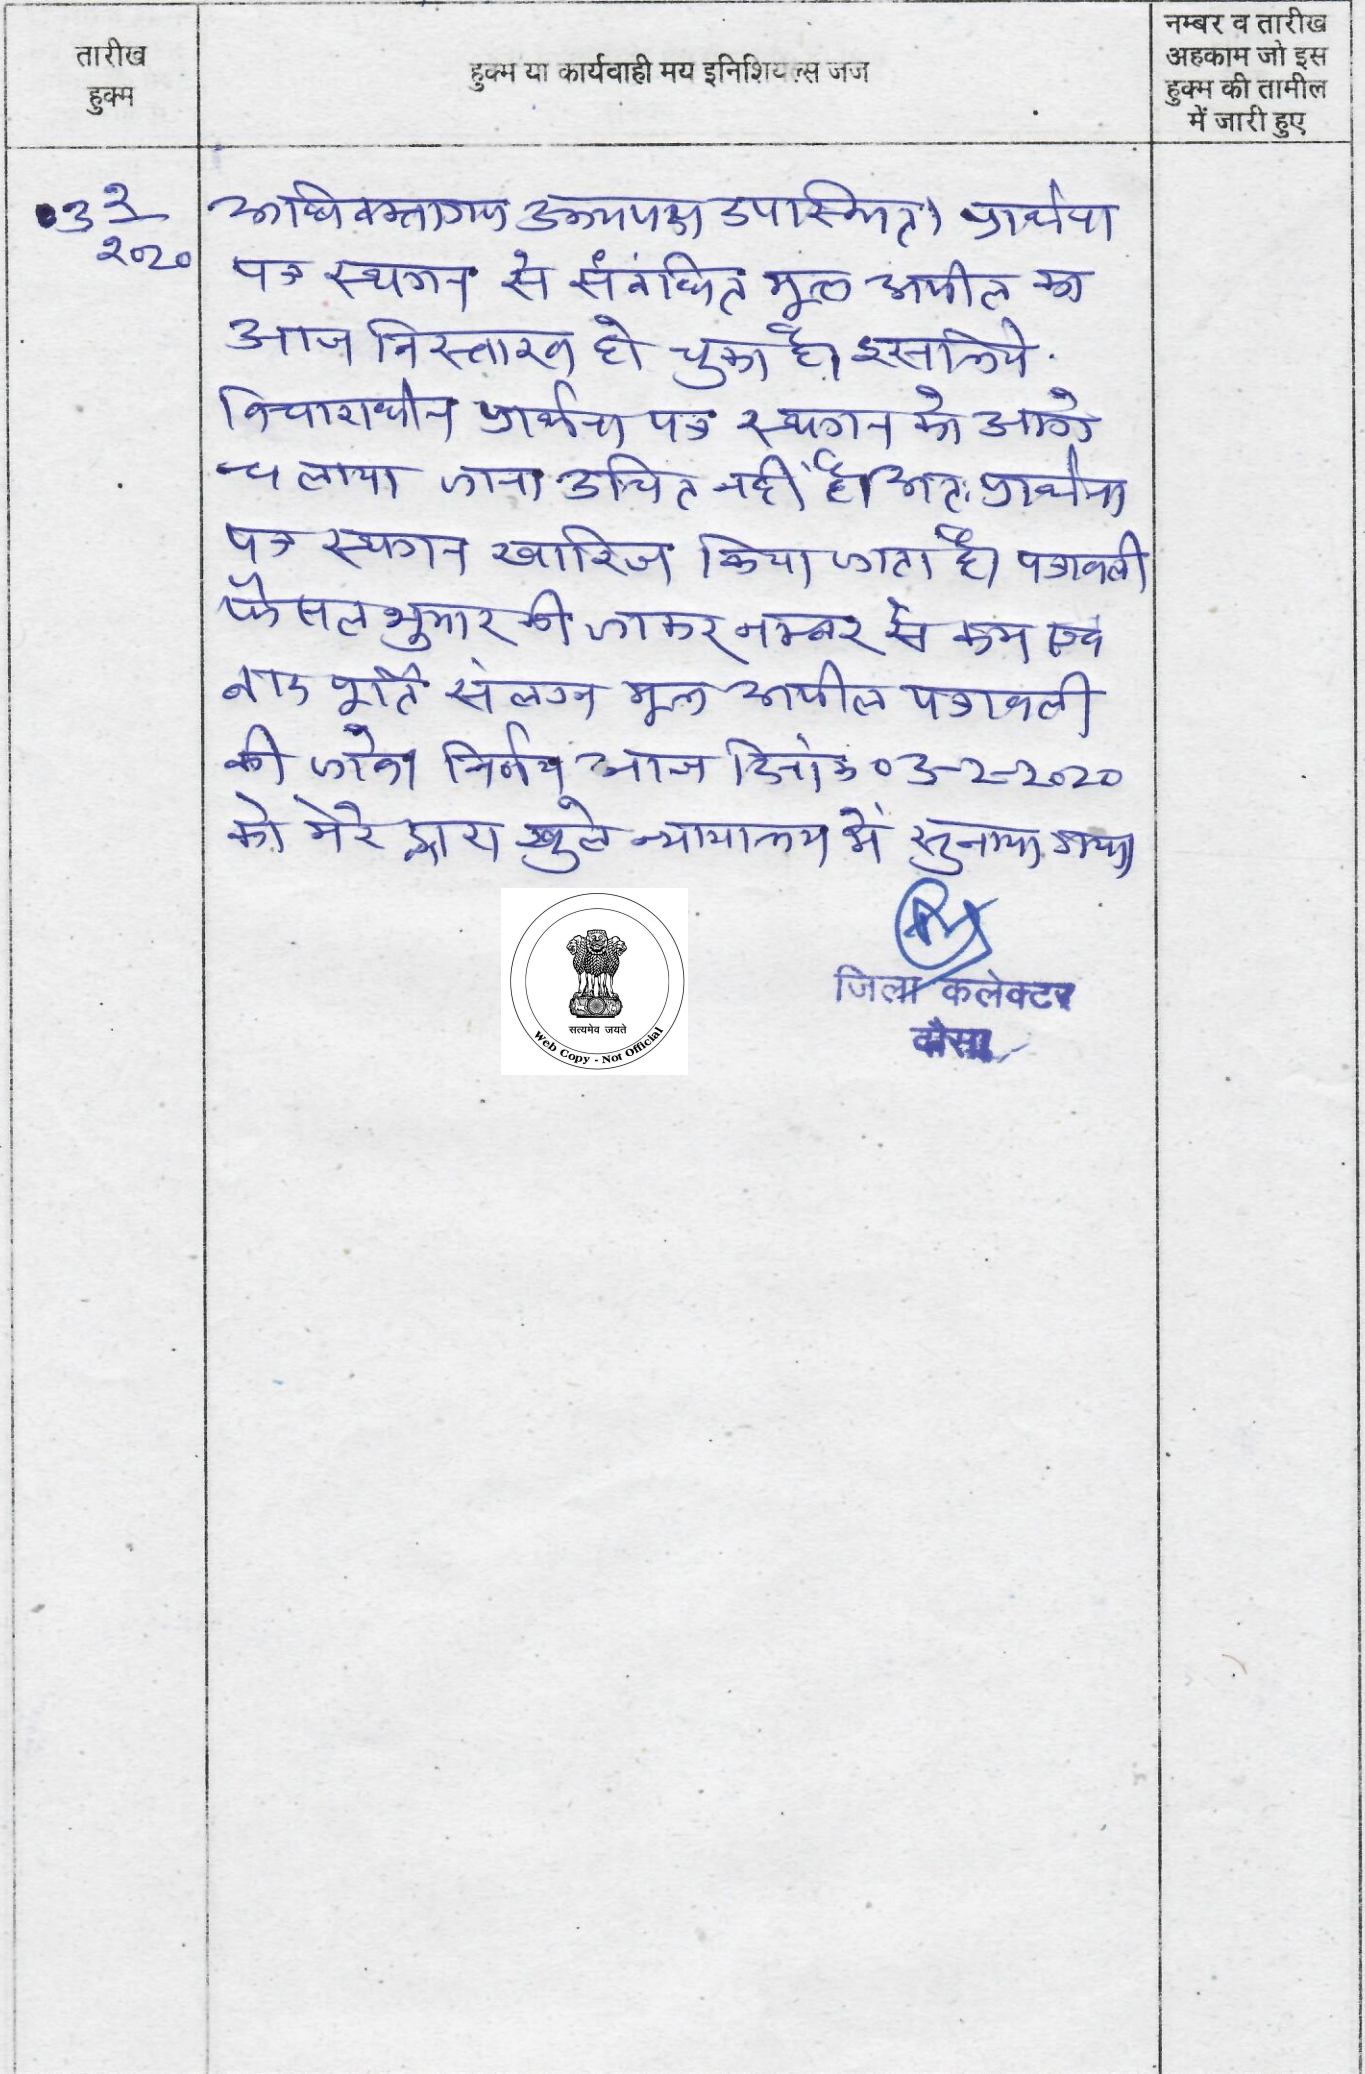 तारीख
हुक्म
हुक्म या कार्यवाही मय इनिशियल्स जज
नम्बर व तारीख
अहकाम जो इस
हुक्म की तामील
में जारी हुए
03 2/2020
अधिवक्तागण उभयपक्ष उपस्थित। प्रार्थना
पत्र स्थगन से संबंधित मूल अपील का
आज निस्तारण हो चुका है। इसलिये
विचाराधीन प्रार्थना पत्र स्थगन को आगे
चलाया जाना उचित नहीं है। अतः प्रार्थना
पत्र स्थगन खारिज किया जाता है। पत्रावली
फैसल शुमार की जाकर नम्बर से कम एवं
बाद पूर्ति संलग्न मूल अपील पत्रावली
की जावे। निर्णय आज दिनांक 03-2-2020
को मेरे द्वारा खुले न्यायालय में सुनाया गया।
सत्यमेव जयते
Web Copy - Not Official
जिला कलेक्टर
दौसा